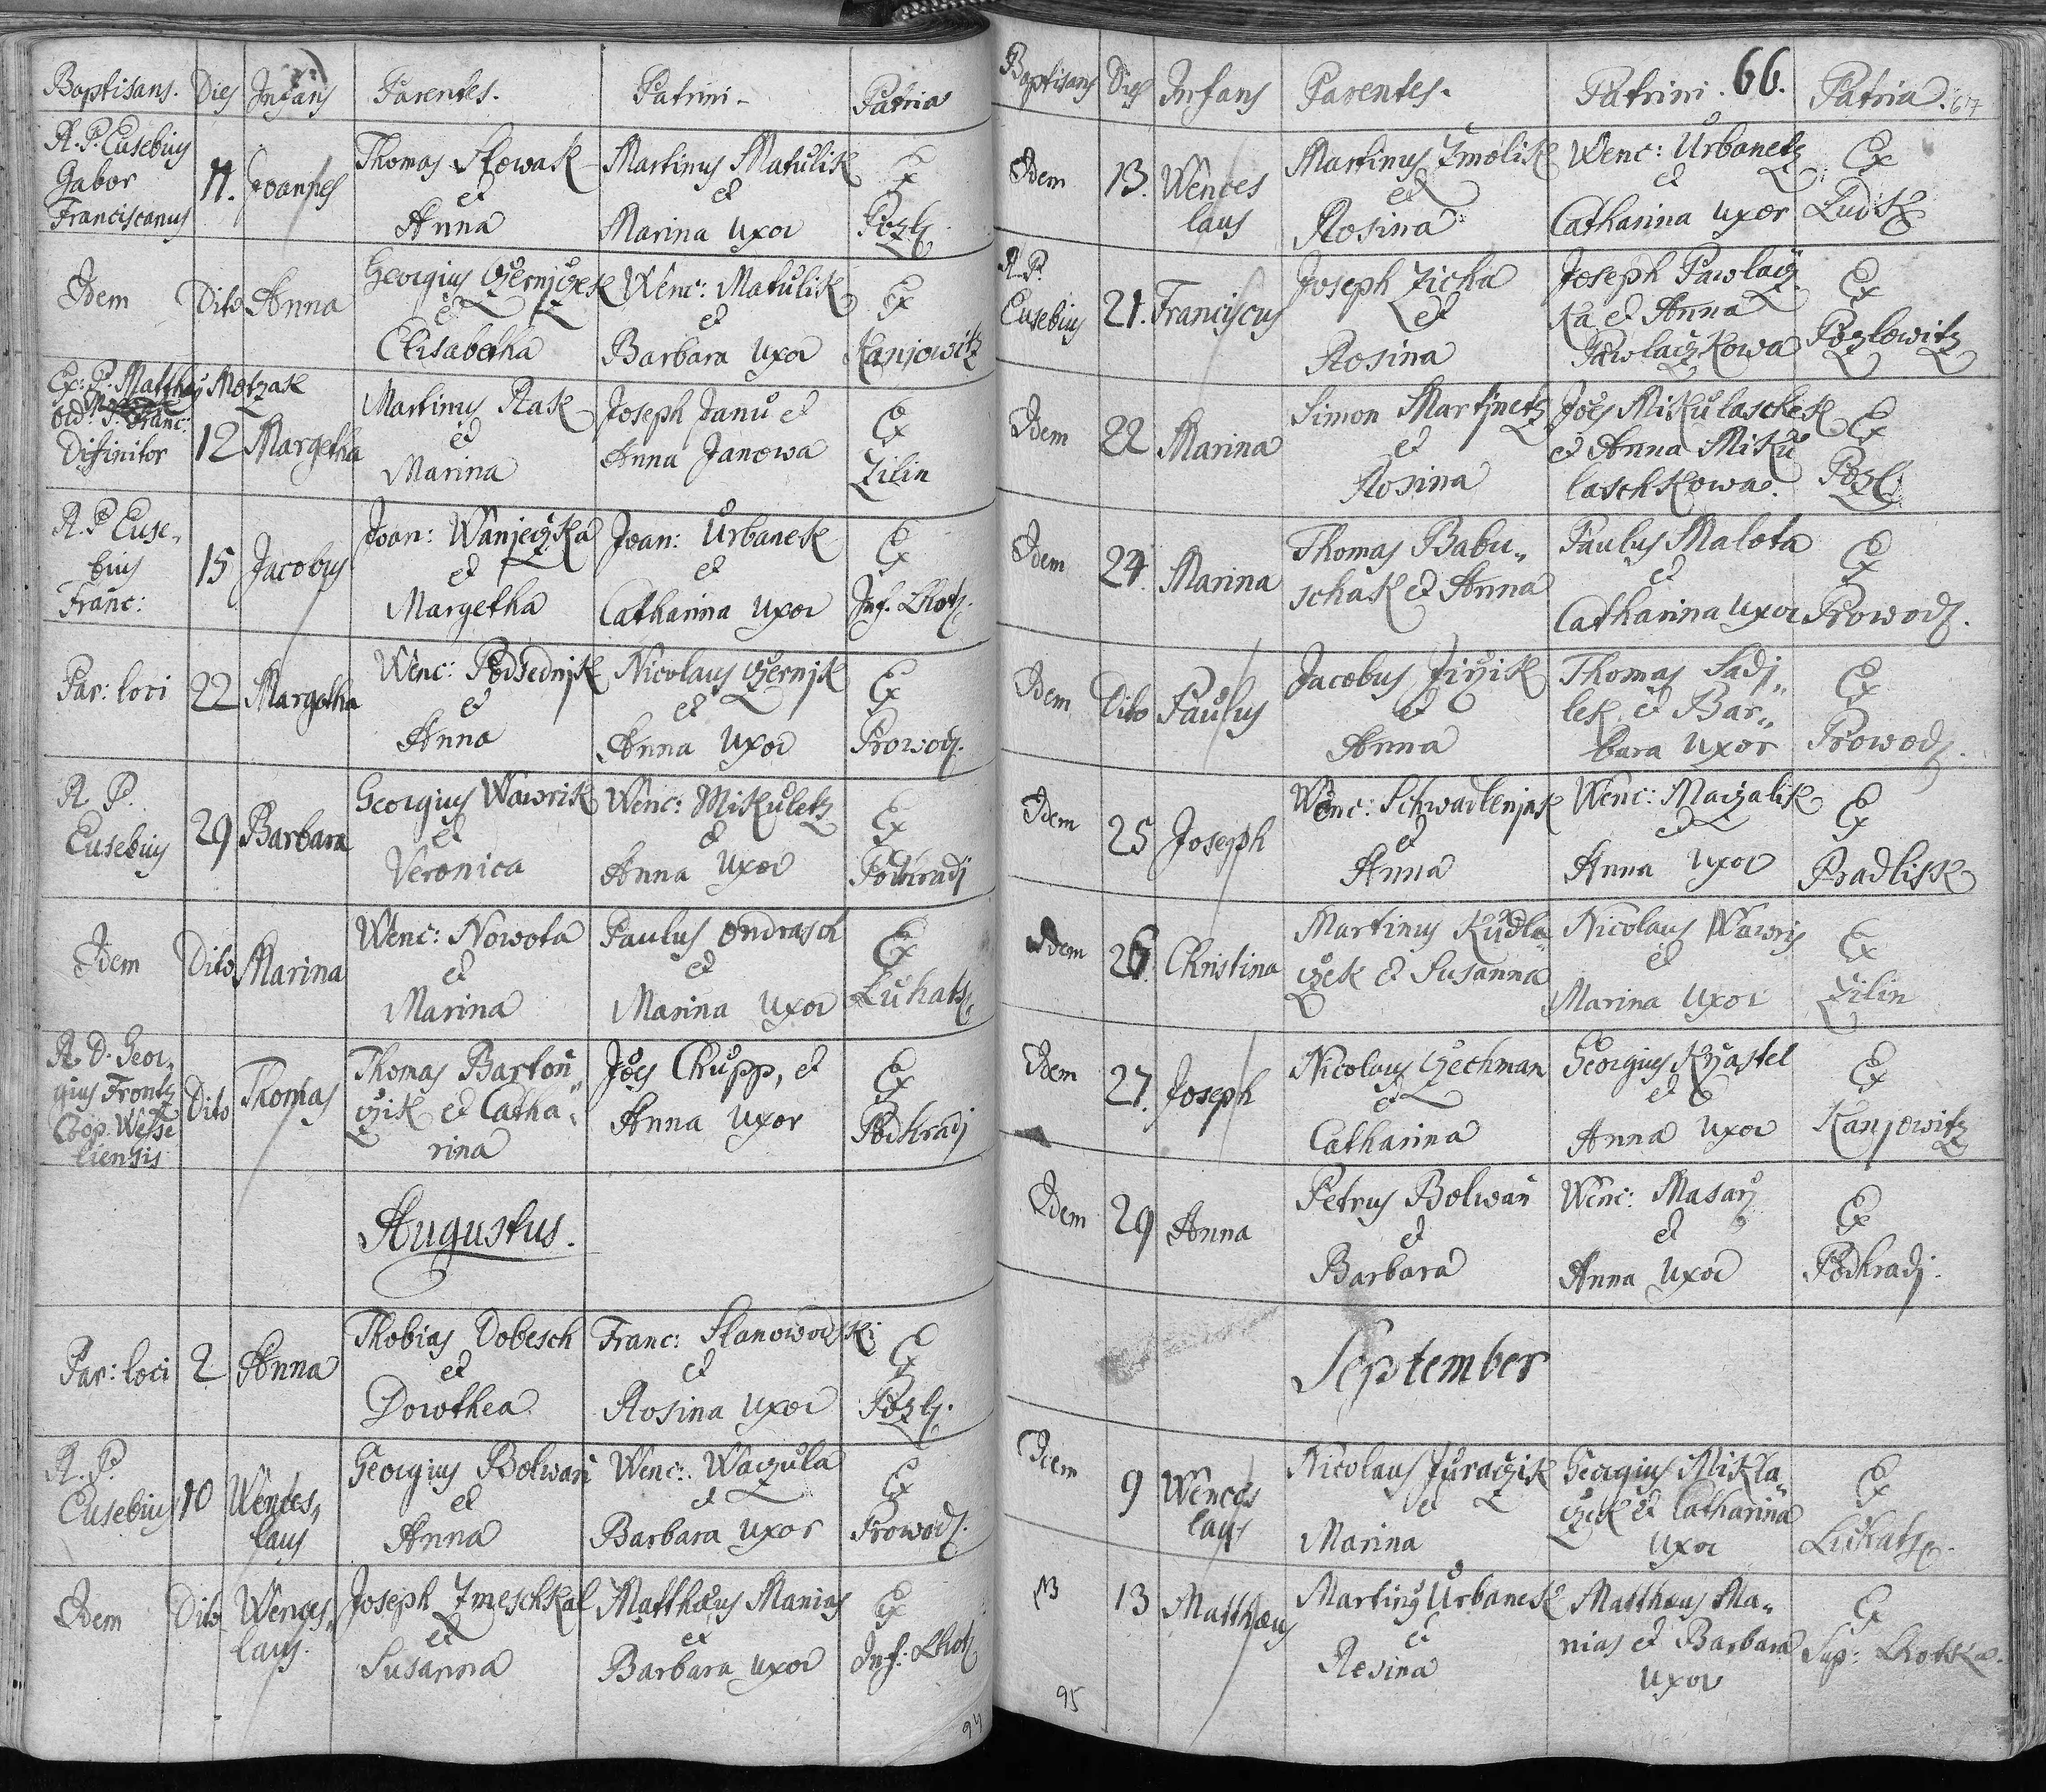 Baptisans. Dies Infans Parentes. Patrini. Patria
R. P. Eusebius Gabor Franciscanus 11. Joannes Thomas Slowak et Anna Martinus Matulik et Marina Uxor Ex Pozl.
Idem Dito Anna Georgius Czernjczek et Elisabetha Wenc: Matulik et Barbara Uxor Ex Kanjowitz
Ex: P. Matthæus Motzak Ord: S. Franc: Difinitor 12 Margetha Martinus Rak et Marina Joseph Janu et Anna Janowa Ex Zilin
R. P. Euse„ bius Franc: 15 Jacobus Joan: Wanjeczka et Margetha Joan: Urbanek et Catharina Uxor Ex Inf. Lhotz.
Par: loci 22 Margetha Wenc: Podsednjk et Anna Nicolaus Czernjk et Anna Uxor Ex Prowodz.
R. P. Eusebius 29 Barbara Georgius Wawrik et Veronica Wenc: Mikuletz et Anna Uxor Ex Podhradj
Idem Dito Marina Wenc: Nowota et Marina Paulus Ondrasch et Marina Uxor Ex Luhatz.
R. D. Geor„ gius Frontz Coop. Wesse liensis Dito Thomas Thomas Bartoň„ czik et Catha„ rina Joes Chupp, et Anna Uxor Ex Podhradj
Augustus.
Par: loci 2 Anna Thobias Dobesch et Dorothea Franc: Stanowodski et Rosina Uxor Ex Pozl.
R. P. Eusebius 10 Wences„ laus Georgius Bolwaň et Anna Wenc: Waczula et Barbara Uxor Ex Prowodz.
Idem Dito Wences„ laus. Joseph Zmeschkal et Susanna Matthæus Manias et Barbara Uxor Ex Inf: Lhotz
94
Baptisans Dies Infans Parentes. Patrini. 66. Patria. 67
Idem 13. Wences laus Martinus Zmolik et Rosina Wenc: Urbanetz et Catharina Uxor Ex Ludk.
R. P. Eusebius 21. Franciscus Joseph Zicha et Rosina Joseph Pawlacz ka et Anna Pawlaczkowa Ex Pozlowitz
Idem 22 Marina Simon Martjnetz et Rosina Joes Mikulaschek et Anna Miku laschkowa. Ex Pozl.
Idem 24. Marina Thomas Babu„ schak et Anna Paulus Malota et Catharina Uxor Ex Prowodz.
Idem Dito Paulus Jacobus Jirzik et Anna Thomas Sadj„ lek et Bar„ bara Uxor Ex Prowodz.
Idem 25 Joseph Wenc: Schwadlenjak et Anna Wenc: Maczalik et Anna Uxor Ex Pradlisk
Idem 26. Christina Martinus Kudla„ czek et Susanna Nicolaus Wawris et Marina Uxor Ex Zilin
Idem 27. Joseph Nicolaus Czechman et Catharina Georgius Krzastel et Anna Uxor Ex Kanjowitz
Idem 29 Anna Petrus Bolwaň et Barbara Wenc: Masarz et Anna Uxor Ex Podhradj.
September
Idem 9 Wences laus Nicolaus Juraczik et Marina Georgius Mikla„ czek et Catharina Uxor Ex Luhatz.
13 Matthæus Martinus Urbanek et Resina Matthæus Ma„ nias et Barbara Uxor Ex Sup: Lhotka.
95